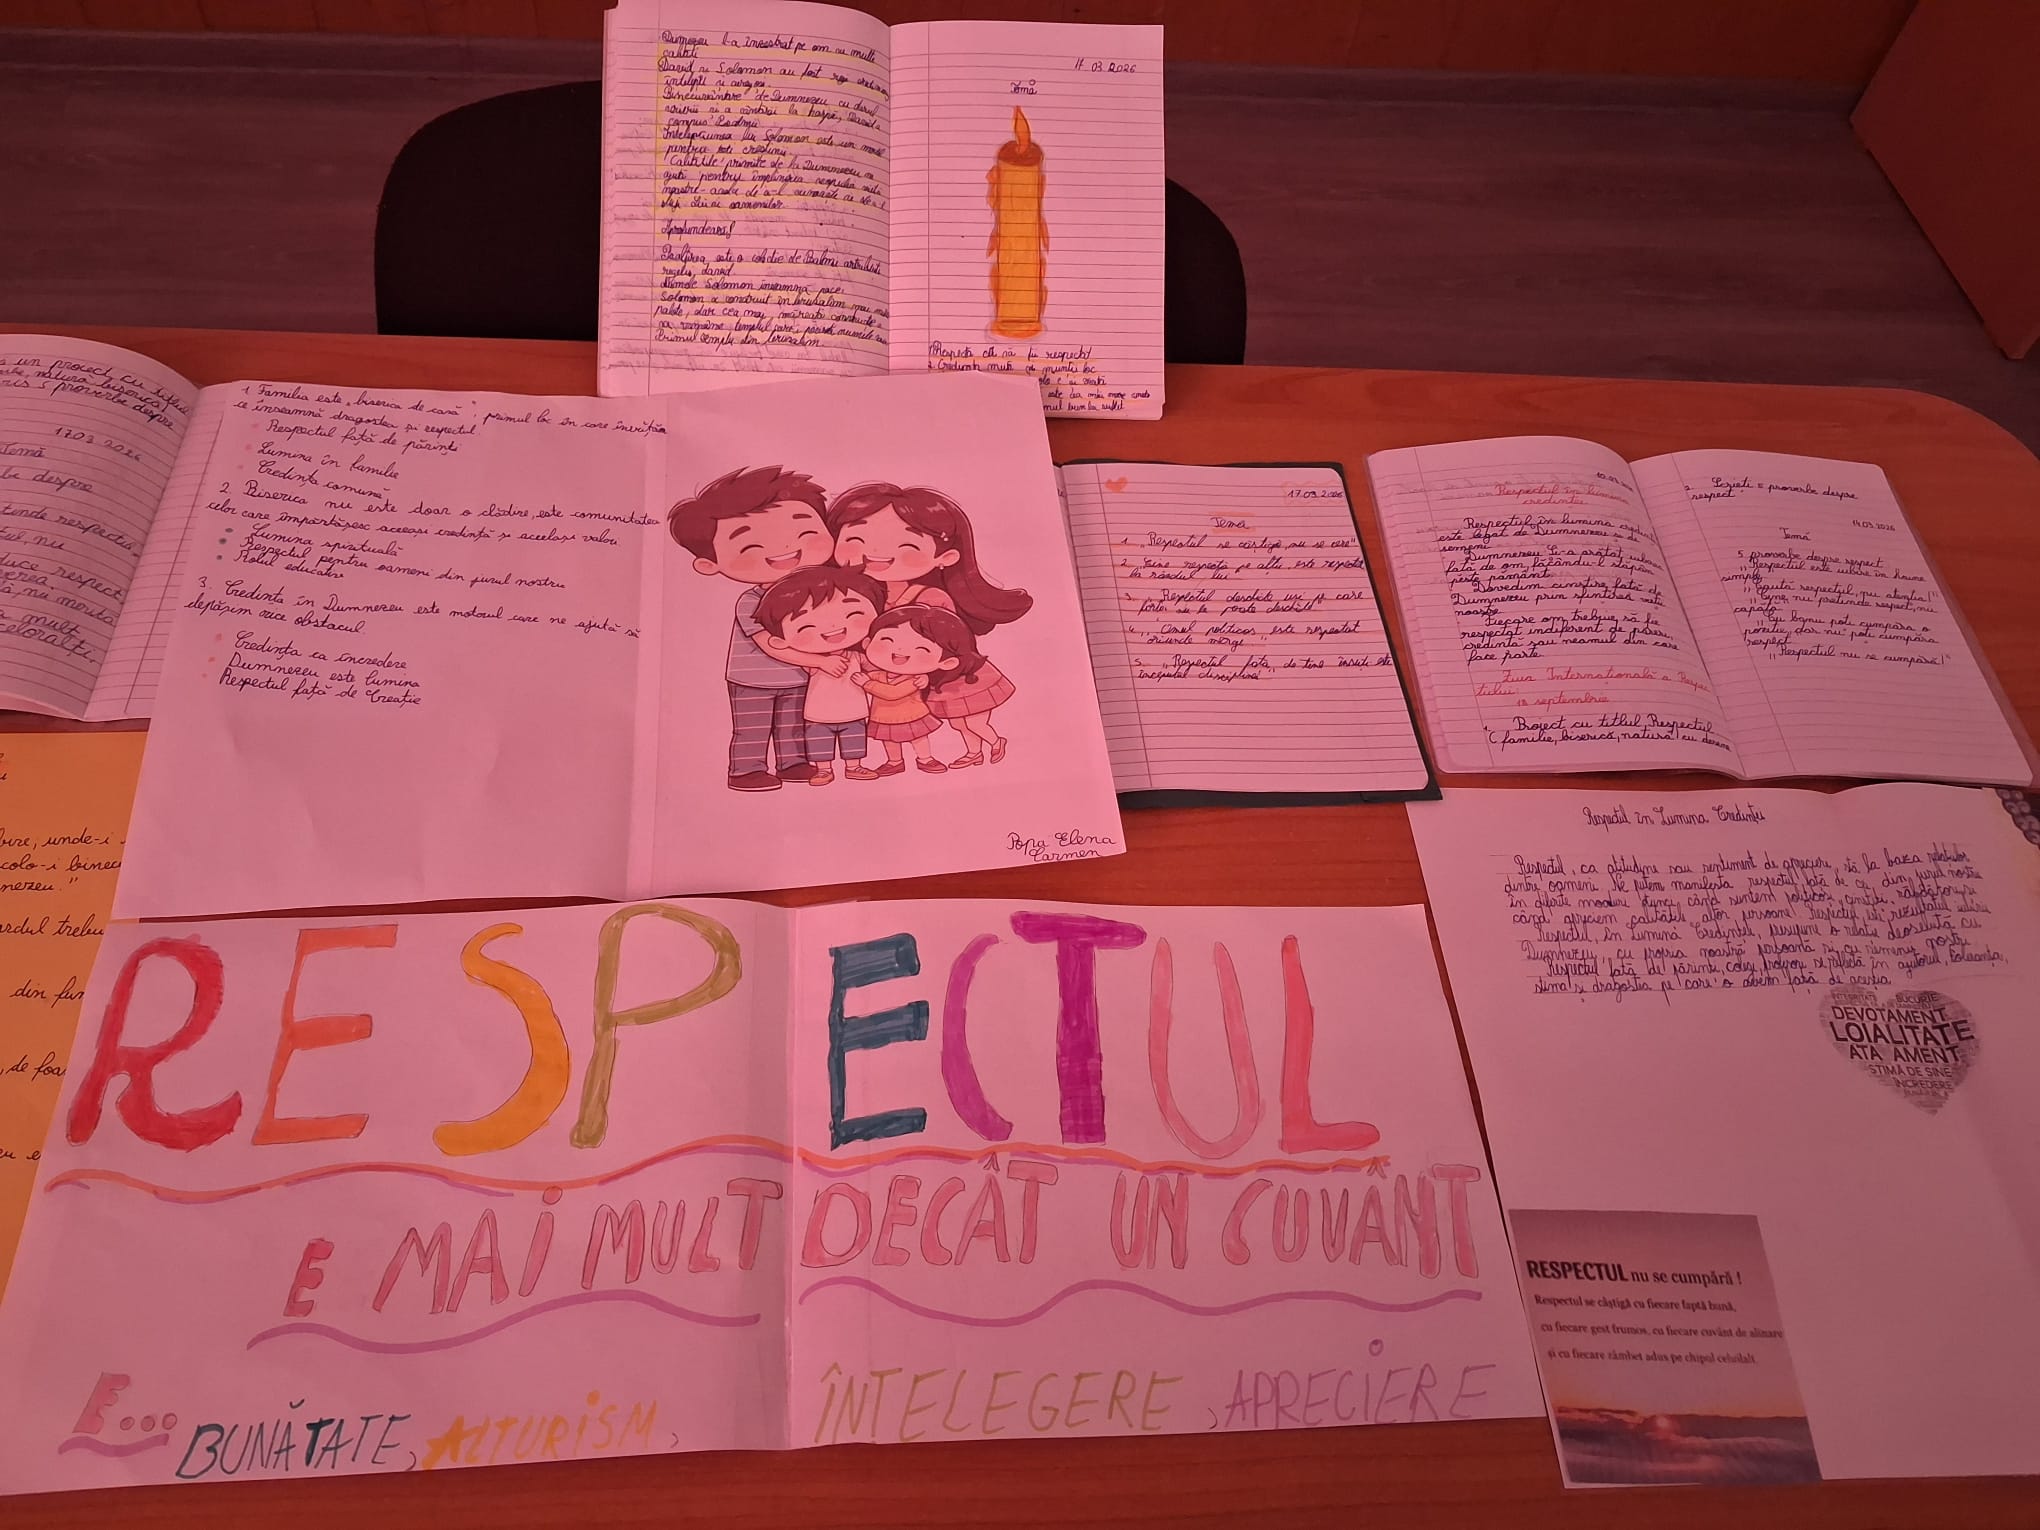 Dumnezeu l-a înzestrat pe om cu multe
calități
David și Solomon au fost regi
înțelepți și
Binecuvântare de Dumnezeu cu darul
scrierii și a cântării la harpă, David a
compus Psalmii
Înțelepciunea lui Solomon este un model
pentru toți creștinii
Calitățile primite de la Dumnezeu ne
ajută pentru împlinirea
noastre- acela de a-l cunoaște
oamenilor.
Aprofundează!
Psaltirea este o colecție de Psalmi atribuită
regelui David
Numele Solomon înseamnă pace.
Solomon a construit în Ierusalim mai multe
palate, dar cea mai măreață construcție
va rămâne templul care poartă numele
Primul Templu din Ierusalim.
17 03 2026
Temă
1. Respectă ca să fii respectat
2. Credința mută și munții din loc
un proiect cu titlul
natură biserică
5 proverbe despre
17.03.2026
Temă
be despre
respectul
tul, nu
duce respect
nu merită
mult
celoralți.
1 Familia este „biserica de casă", primul loc în care învățăm
ce înseamnă dragostea și respectul.
Respectul față de părinți
Lumina în familie
Credința comună
2. Biserica nu este doar o clădire, este comunitatea
celor care împărtășesc aceeași credință și aceleași valori.
Lumina spirituală
Respectul pentru oamenii din jurul nostru
Rolul educativ
3. Credința în Dumnezeu este motorul care ne ajută să
depășim orice obstacol.
Credința ca încredere
Dumnezeu este lumina
Respectul față de Creație
Popa Elena
Carmen
17.03.2026
Temă
1. „Respectul se câștigă, nu se cere"
2. „Cine respectă pe alții, este respectat
la rândul lui
3. „Respectul deschide uși pe care
forța nu le poate deschide"
4. „Omul politicos este respectat
oriunde merge"
5. „Respectul față de tine însuți este
începutul disciplinei"
Respectul în lumina
credinței
Respectul în lumina credinței
este legat de Dumnezeu și de
semeni
Dumnezeu și-a arătat iubirea
față de om, făcându-l stăpân
peste pământ
Dovedim cinstire față de
Dumnezeu prin sfințirea vieții
noastre
Fiecare om trebuie să fie
respectat indiferent de părerea,
credința sau neamul din care
face parte
Ziua Internațională a Respec
tului
18 septembrie
1. Proiect cu titlul „Respectul
(familie, biserică, natură) cu desene
2. Scrieți 5 proverbe despre
respect
14.03.2026
Temă
5 proverbe despre respect
„Respectul este iubire în haine
simple"
„Caută respectul, nu atenția!"
„Cine nu pretinde respect, nu
capătă"
„Cu banu poți cumpăra o
poziție, dar nu poți cumpăra
respect"
„Respectul nu se cumpără!"
unde-i
colo-i
nezeu."
ardul trebu
din
, de
Respectul în Lumina Credinței
Respectul, ca atitudine sau sentiment de apreciere, stă la baza relațiilor
dintre oameni. Ne putem manifesta respectul față de cei din jurul nostru
în diferite moduri atunci când suntem politicoși, cinstiți, răbdători și
când apreciem calitățile altor persoane. Respectul este rezultatul iubirii
Respectul, în Lumina Credinței, presupune o relație deosebită cu
Dumnezeu, cu propria noastră persoană și cu semenii noștri
Respectul față de părinți, colegi, profesori se reflectă în ajutorul, toleranța,
stima și dragostea pe care o avem față de aceștia
INTEGRITATE BUCURIE
DEVOTAMENT
LOIALITATE
ATA AMENT
STIMĂ DE SINE
ÎNCREDERE
RESPECTUL
E MAI MULT DECÂT UN CUVÂNT
E...
BUNĂTATE, ALTURISM, ÎNTELEGERE, APRECIERE
RESPECTUL nu se cumpără !
Respectul se câștigă cu fiecare faptă bună,
cu fiecare gest frumos, cu fiecare cuvânt de alinare
și cu fiecare zâmbet adus pe chipul celuilalt.